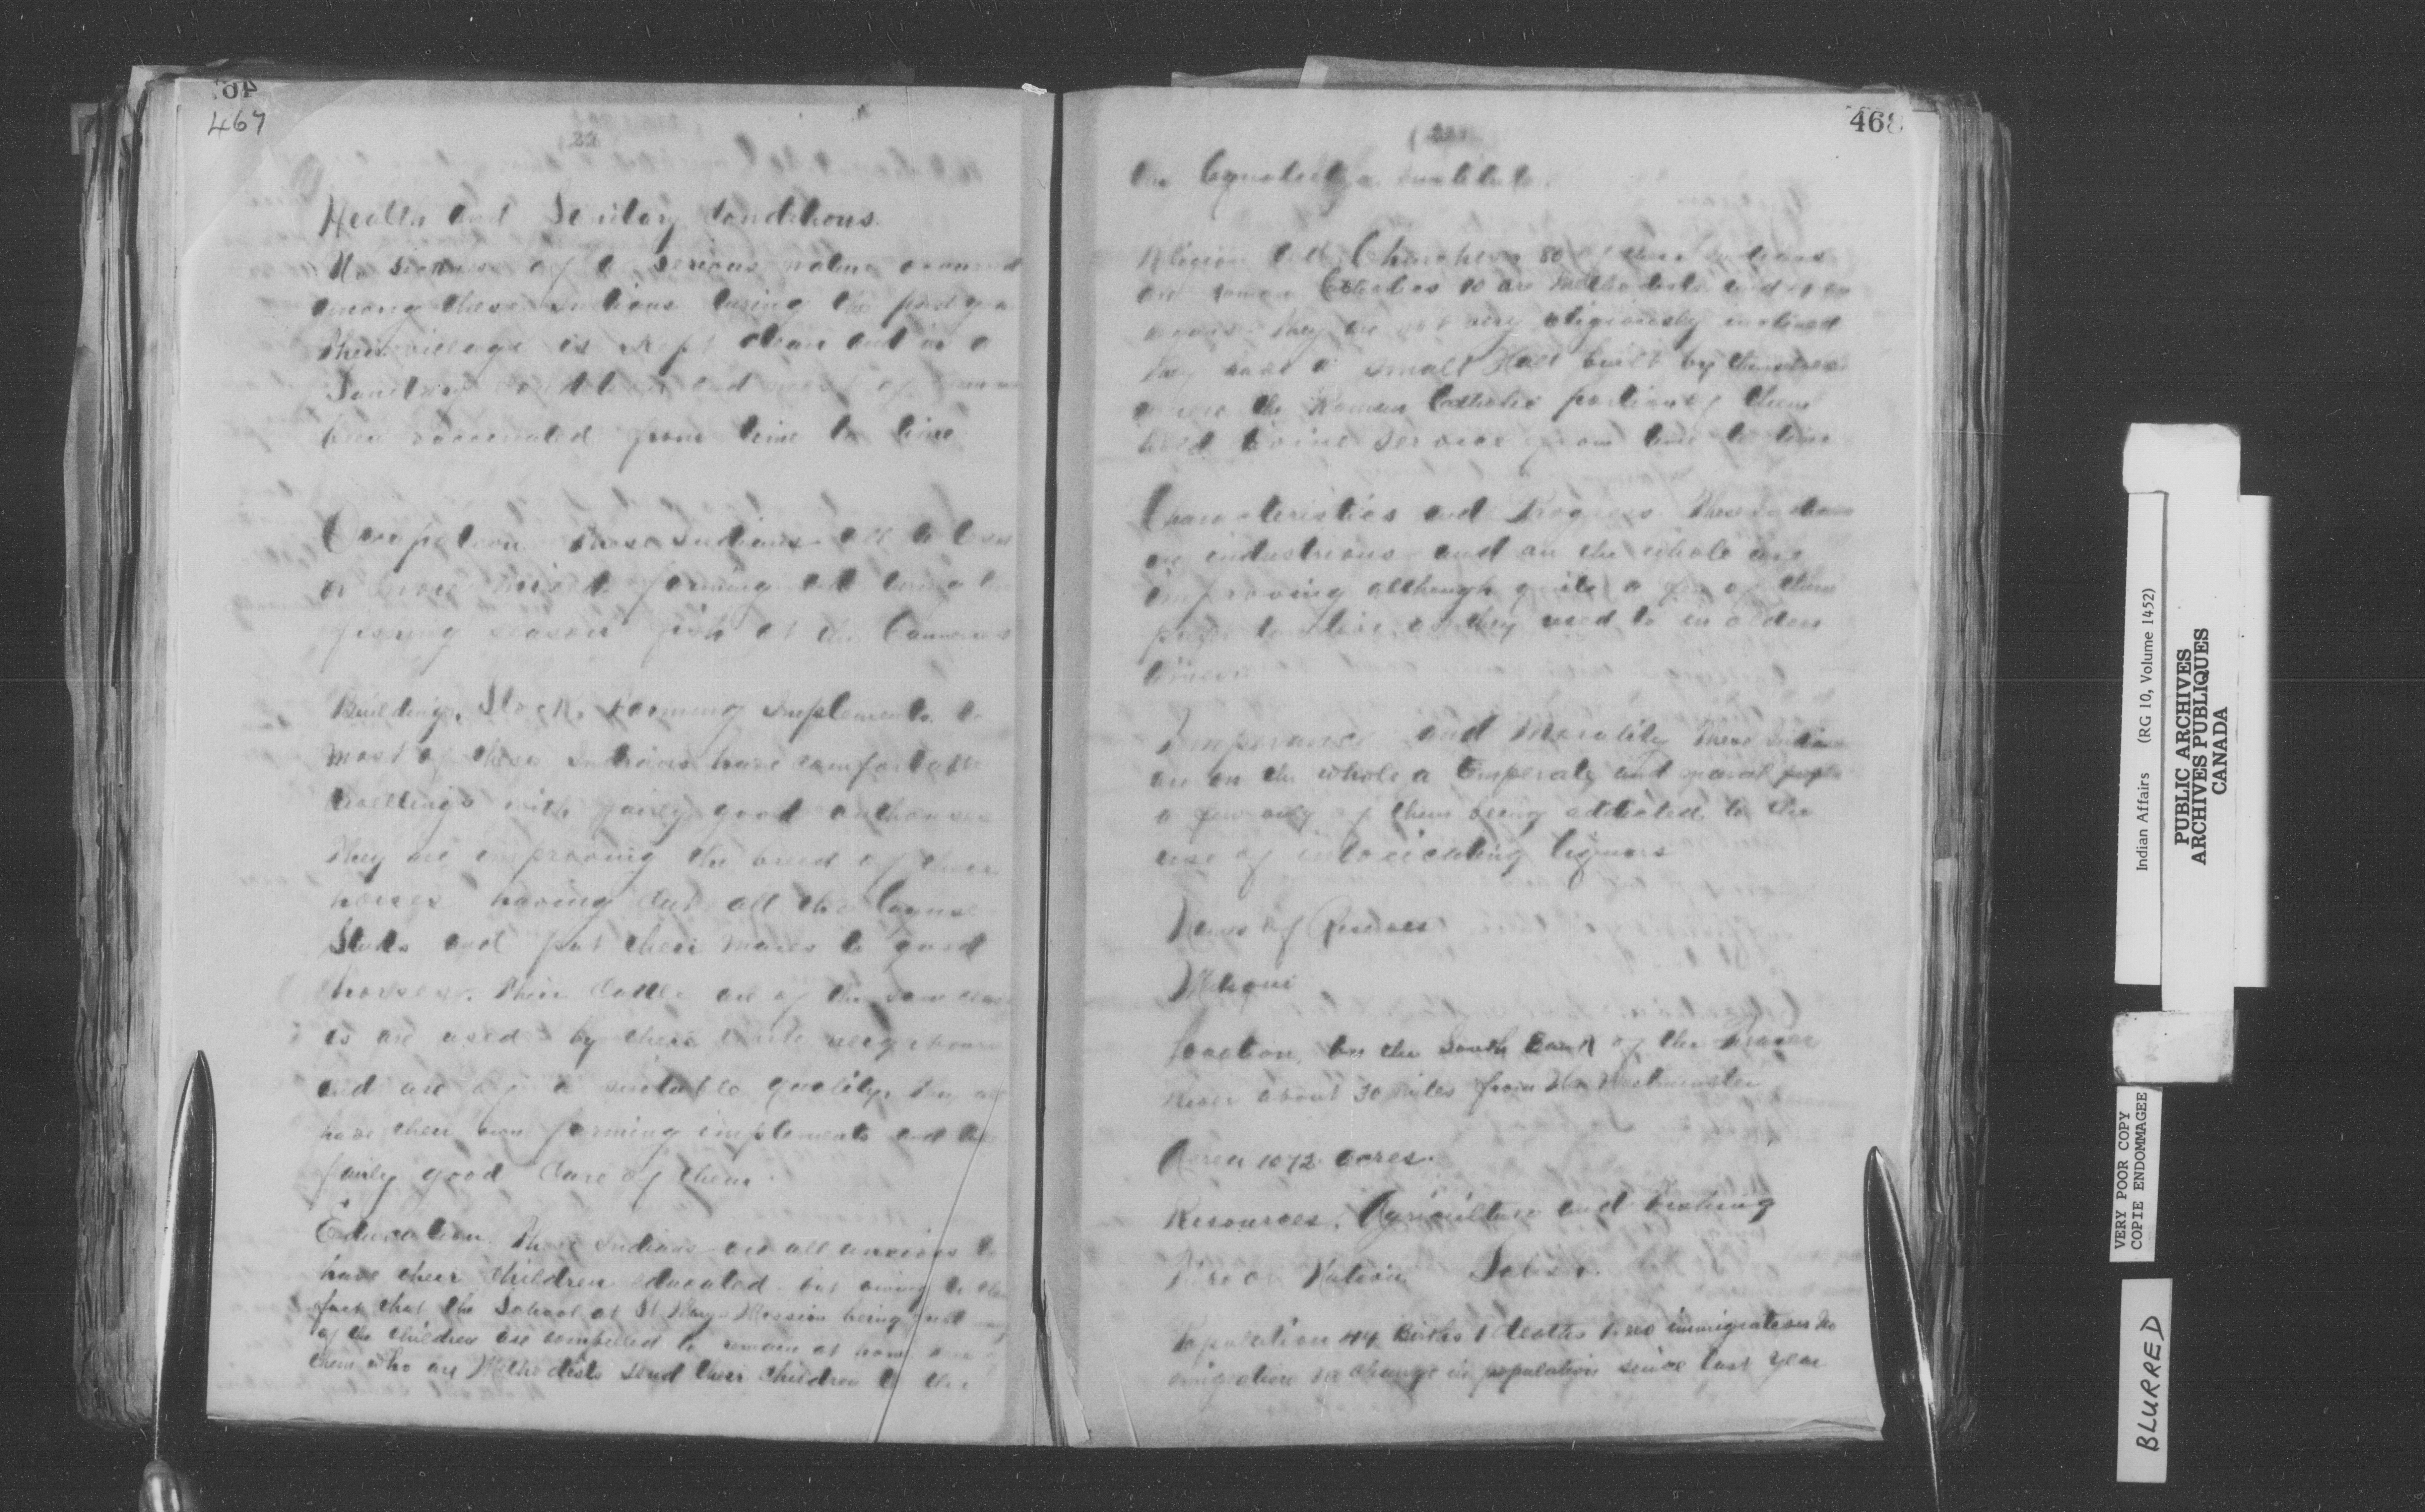 467
22
Health and Sanitary Conditions.
No sickness of a serious nature occurred
among these Indians during the past year
Their village is kept clean and in a
Sanitary condition and most of
been vaccinated from time to time
Occupation These Indians all to less
or more mixed farming and during the
fishing season fish at the Canneries
Buildings, Stock, Farming Implements.
Most of these Indians have comfortable
dwellings with fairly good outhouses
They are improving the breed of their
horses having cut all the Cayuse
Studs and put their mares to good
horses. Their Cattle are of the same class
as are used by their white neighbours
and are of a suitable quality.
have their own farming implements and
fairly good care of them.
Education. These Indians are all anxious to
have their children educated but owing to the
fact that the School at St Mary's Mission being full
of the children are compelled to remain at home
them who are Methodists send their children to the
468
Coqualeetza Institute.
Religion and Churches 80 of these Indians
are Roman Catholics 10 are Methodists and
They are not very religiously inclined
They have a small Hall built by themselves
where the Roman Catholic portion of them
hold Divine service from time to time
Characteristics and Progress. These Indians
are industrious and on the whole are
improving although quite a few of them
prefer to live as they used to in olden
times
Temperance and Morality These Indians
are on the whole a temperate and moral people
a few only of them being addicted to the
use of intoxicating liquors
Names of Reserves
Location. On the South Bank of the Fraser
River about 30 miles from New Westminster
Area 1072 acres.
Resources. Agriculture and Fishing
Tribe or Nation Salish.
Population 44 Births 1 deaths 1. no immigration no
emigration no change in population since last year
Indian Affairs (RG 10, Volume 1452)
PUBLIC ARCHIVES
ARCHIVES PUBLIQUES
CANADA
VERY POOR COPY
COPIE ENDOMMAGEE
BLURRED